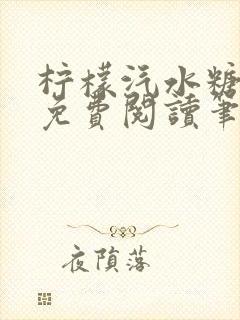 柠檬汽水糖
免費閱讀筆
夜陨落